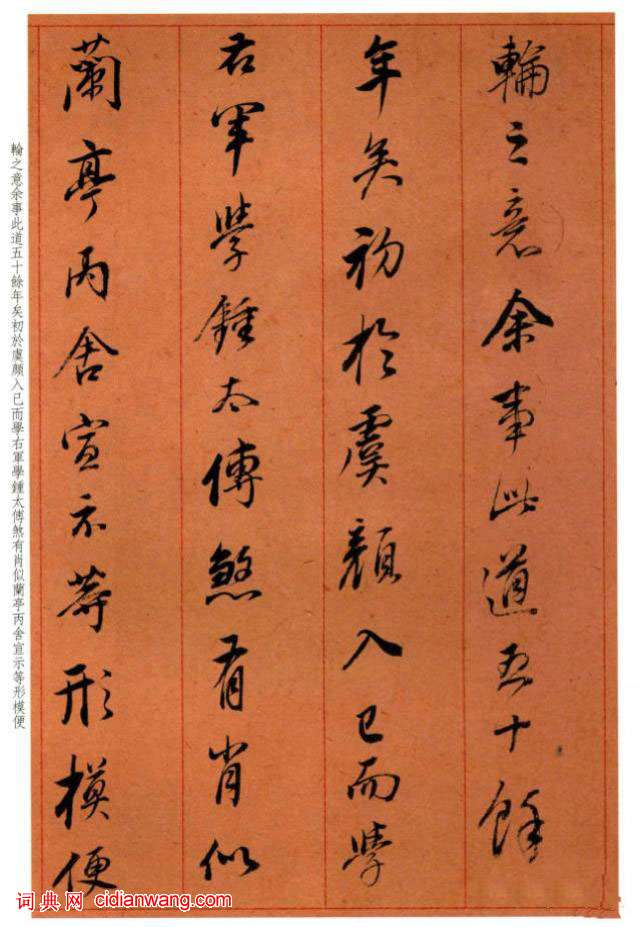 輪之意余事此道五十餘
年矣初於虞顏入已而學
右軍學鍾太傅煞有肖似
蘭亭丙舍宣示等形模便
輪之意余事此道五十餘年矣初於虞顏入已而學右軍學鍾太傅煞有肖似蘭亭丙舍宣示等形模便
词典网 cidianwang.com